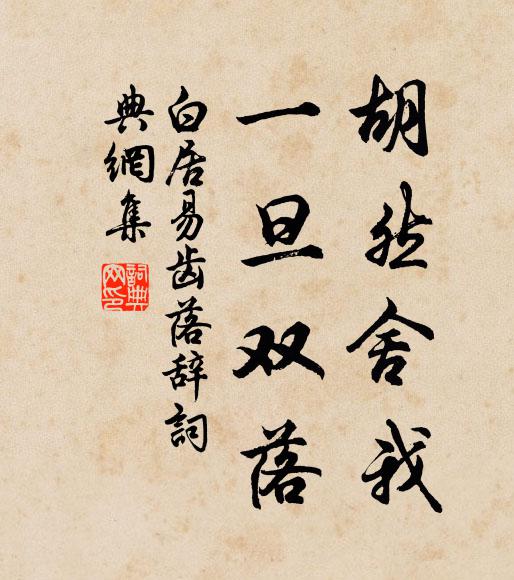 胡然舍我
一旦双落
白居易齿落辞詞
典網集
詞典
网印